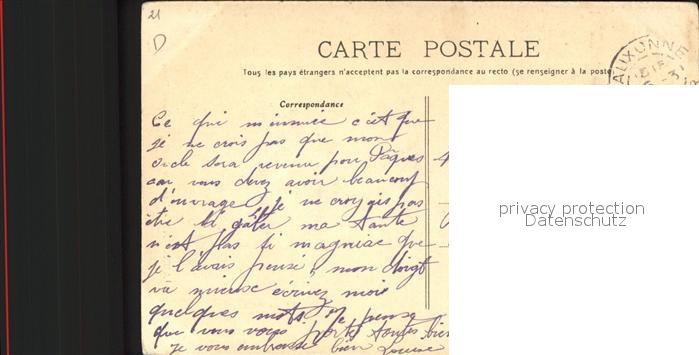 21
D
CARTE POSTALE
Tous les pays étrangers n'acceptent pas la correspondance au recto (se renseigner à la poste)
AUXONNE
Correspondance
Ce qui m'ennuie c'est que
je ne crois pas que mon
oncle sera revenu pour Pâques
car vous devez avoir beaucoup
d'ouvrage je ne croyais pas
être si gâter ma tante
n'est pas si maniac que
je l'avais pensé, mon doigt
va mieux écrivez moi
quelques mots Je pense
que vous vous porte toutes bien
je vous embrasse bien Louise
privacy protection
Datenschutz